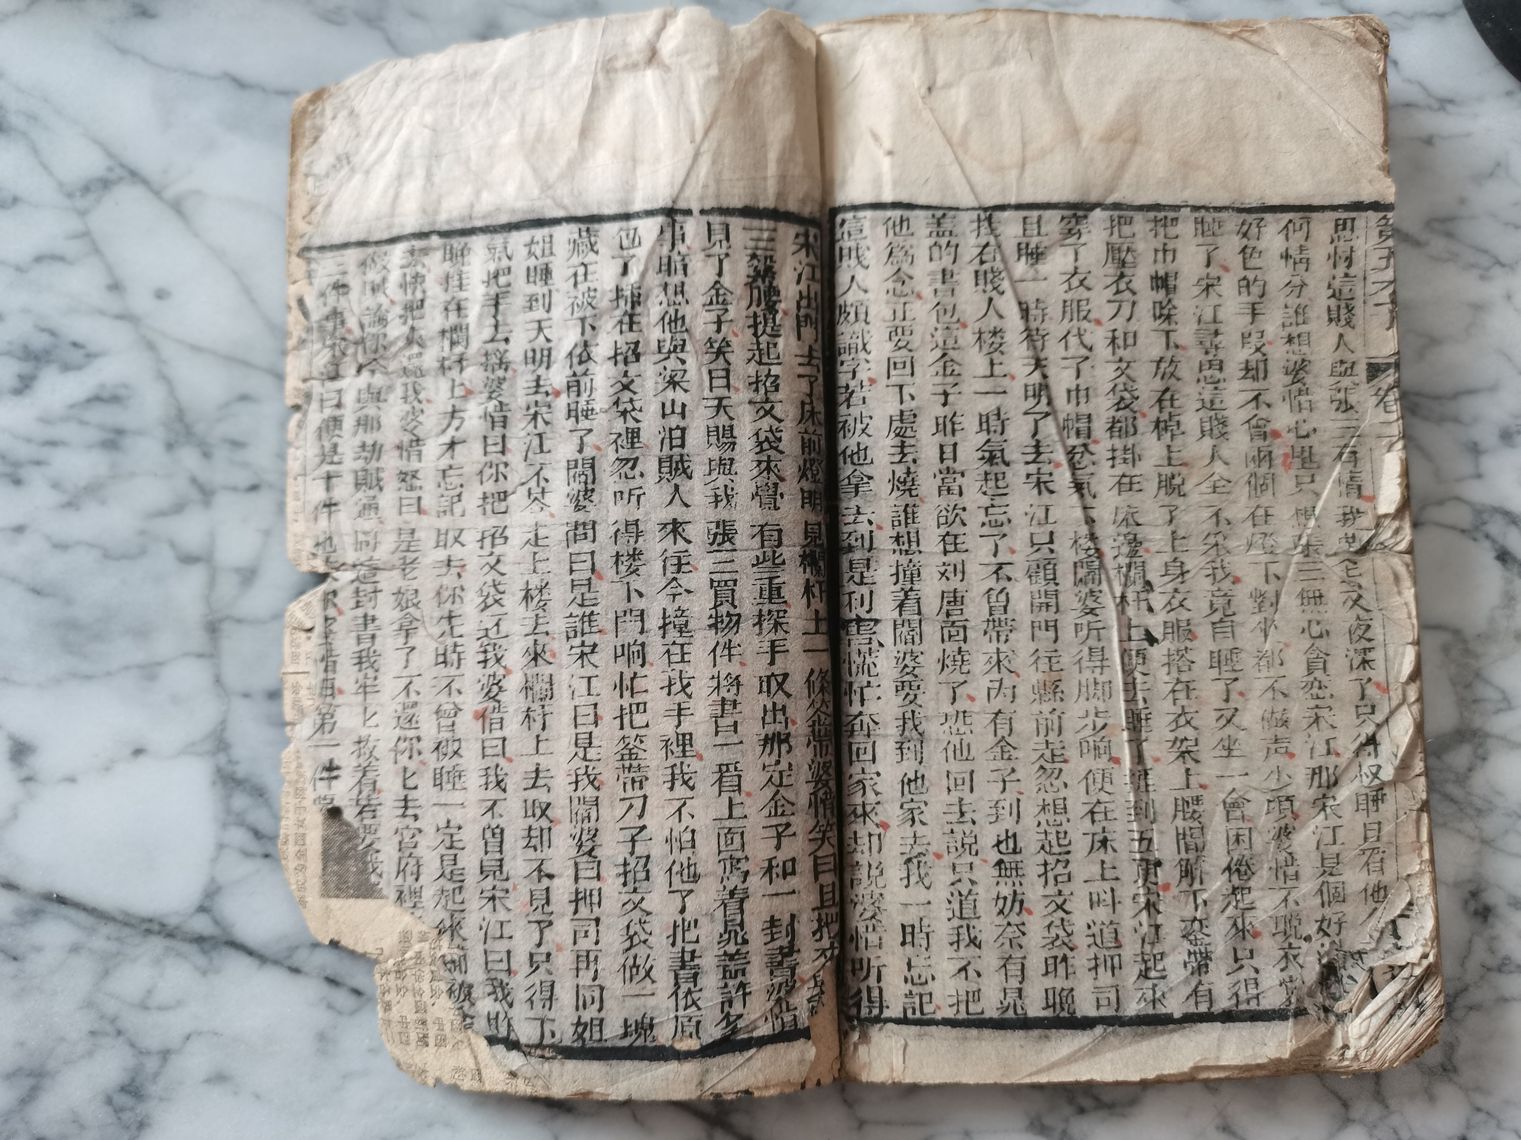 思忖這賤人與張三有情我
夜深了只得权睡且看他
何情分誰想婆惜心里只想張三無心貪恋宋江那宋江是個好
好色的手段却不會兩個在燈下對坐都不做声少項婆惜不脱衣裳
睡了宋江尋思這賤人全不采我竟自睡了又坐一會困倦起來只得
把巾帽除下放在棹上脱了上身衣服搭在衣架上腰間解下鸞帶有
把壓衣刀和文袋都掛在床邊欄杆上便去睡了捱到五更宋江起來
穿了衣服代了巾帽忿氣下楼閻婆听得脚步响便在床上叫道押司
且睡一時待天明了去宋江只顧開門往縣前走忽想起招文袋昨晚
挂在賤人楼上一時氣起忘了不曾帶來內有金子到也無妨奈有晁
盖的書包這金子昨日當欲在刘唐面燒了恐他回去説只道我不把
他爲念正要回下處去燒誰想撞着閻婆要我到他家去我一時忘記
這賤人頗識字若被他拿去到是利害慌忙奔回家來却說婆惜听得
宋江出門去了床前燈明見欄杆上一條鸞帶婆惜笑曰且把
張三繫腰提起招文袋來覺有些重探手取出那定金子和一封書婆惜
見了金子笑曰天賜與我張三買物件將書一看上面寫着晁盖許多
事暗想他與梁山泊賊人來往今撞在我手裡我不怕他了把書依原
包了揷在招文袋裡忽听得楼下門响忙把鸞帶刀子招文袋做一塊
藏在被下依前睡了閻婆問曰是誰宋江曰是我閻婆曰押司再同姐
姐睡到天明去宋江不答走上楼去來欄杆上去取却不見了只得下
氣把手去搖婆惜曰你把招文袋还我婆惜曰我不曾見宋江曰我昨
晚挂在欄杆上方才忘記取去你先時不曾被睡一定是起來
婆惜怒曰是老娘拿了不還你你去官府裡
與那劫賊通同這封書我牢
三件事宋江曰便是十件也
第一件